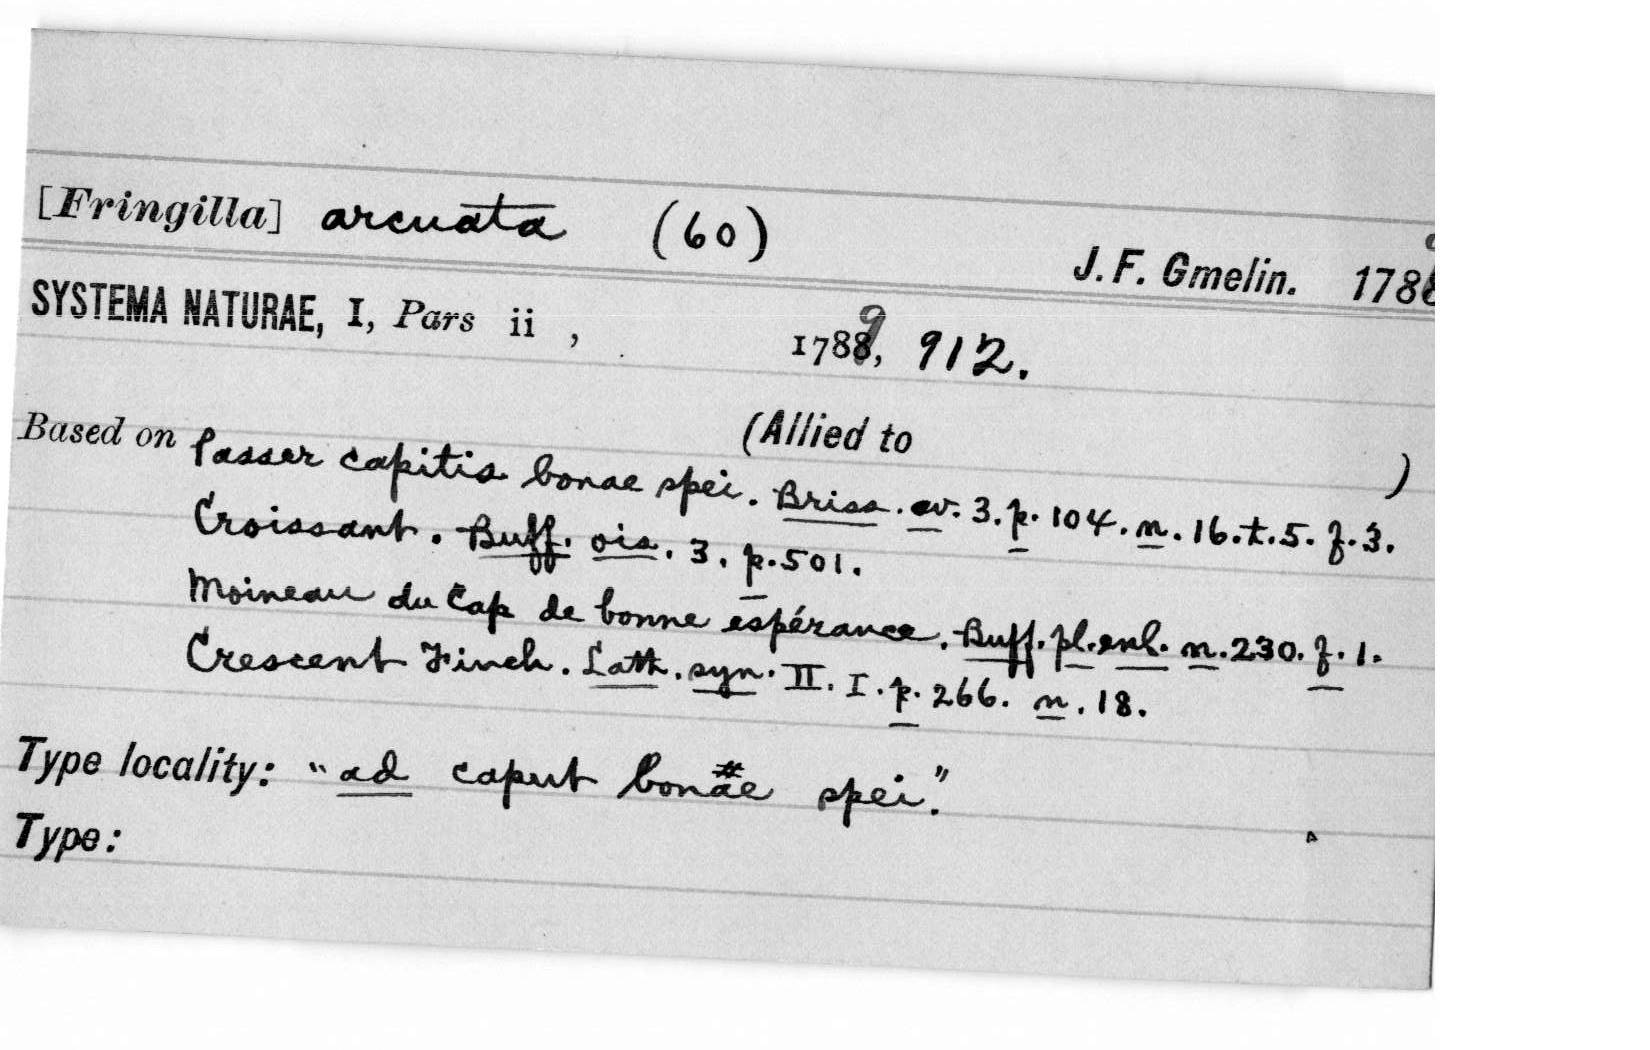 [Fringilla] arcuata (60)
J. F. Gmelin. 178
SYSTEMA NATURAE, I, Pars ii , 1789, 912.
Based on (Allied to )
Passer capitis bonae spei. Briss. av. 3. p. 104. n. 16. t. 5. f. 3.
Croissant. Buff. ois. 3. p. 501.
Moineau du Cap de bonne espérance. Buff. pl. enl. n. 230. f. 1.
Crescent Finch. Lath. syn. II. I. p. 266. n. 18.
Type locality: "ad caput bonae spei."
Type: